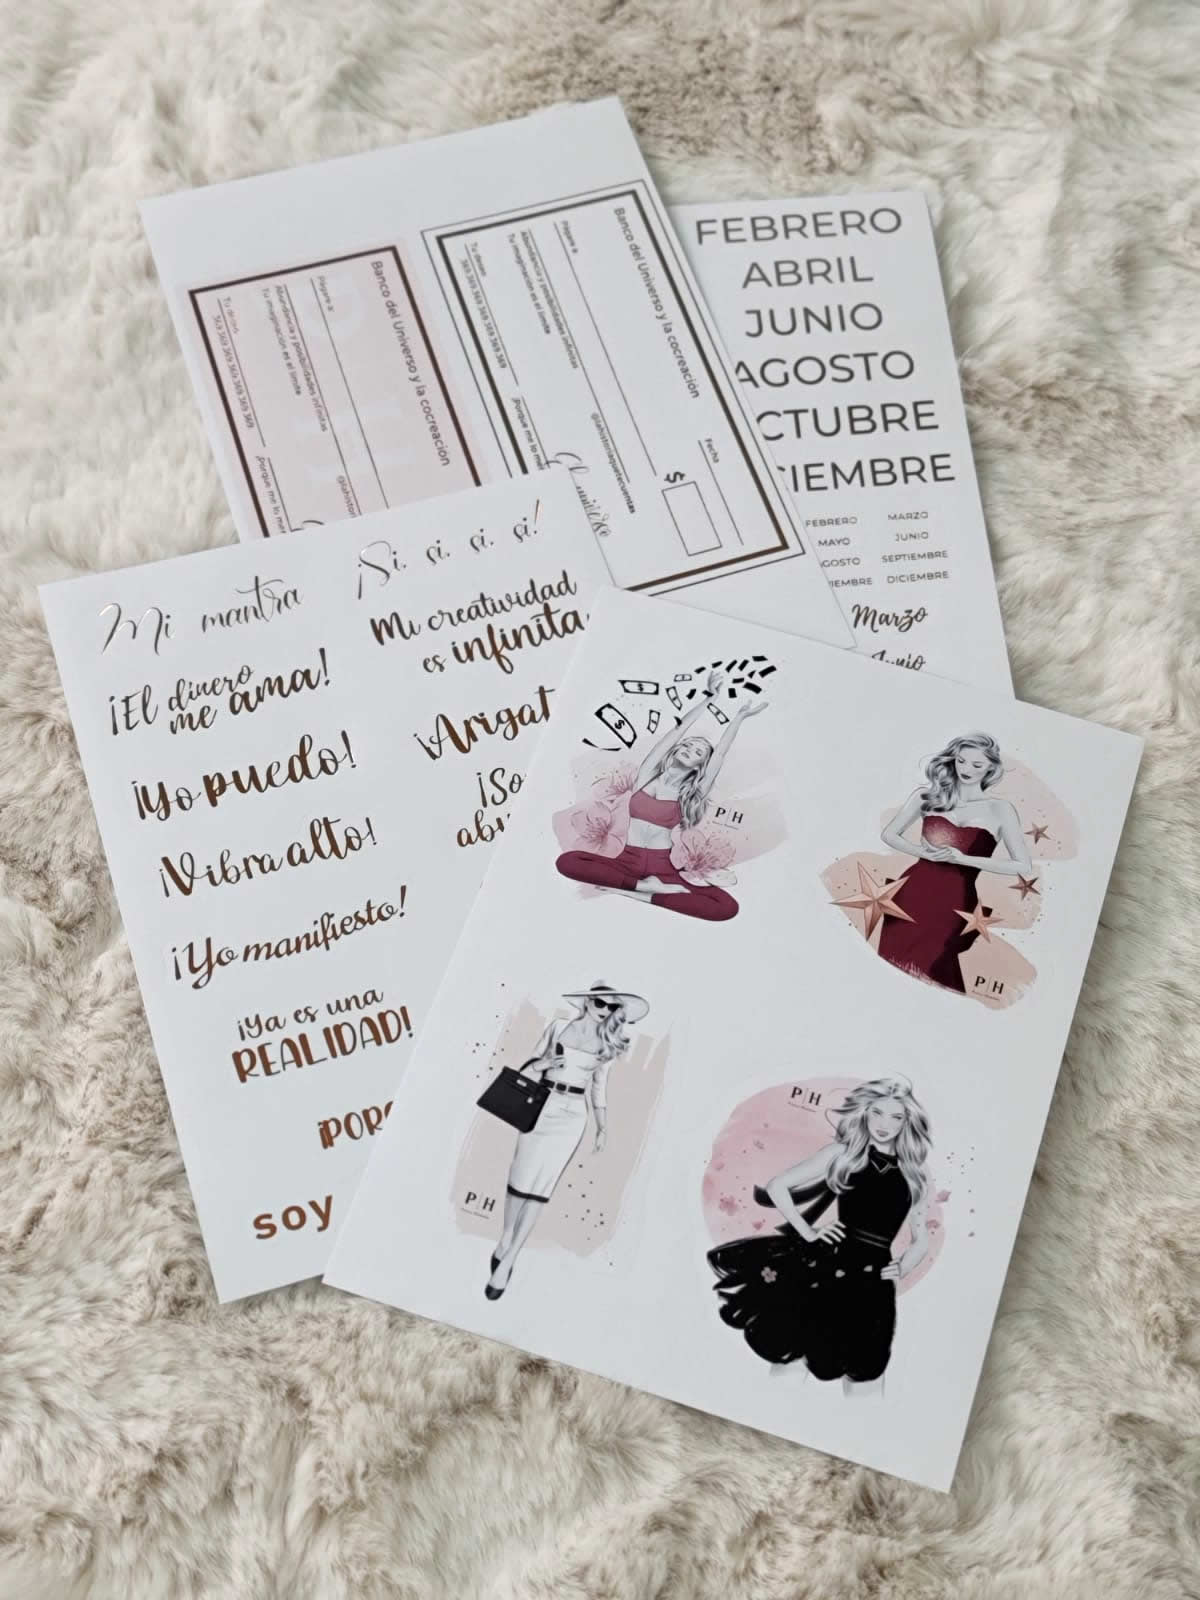 Banco del Universo y la cocreación
Fecha
Páguese a:
$
Abundancia y posibilidades infinitas
Tu imaginación es el límite
@lahistoriaquetecuentas
Tu deseo
369 369 369 369 369 369
¡Porque me lo mer
El universo
Banco del Universo y la cocreación
Páguese a:
Abundancia y posibilidades infinitas
Tu imaginación es el límite
@lahistori
Tu deseo
369 369 369 369 369 369
¡Porque me lo me
FEBRERO
ABRIL
JUNIO
AGOSTO
CTUBRE
CIEMBRE
FEBRERO MARZO
MAYO JUNIO
GOSTO SEPTIEMBRE
IEMBRE DICIEMBRE
Marzo
Junio
Mi mantra
¡Si, si, si, si!
¡El dinero
me ama!
¡Yo puedo!
¡Vibra alto!
¡Yo manifiesto!
¡Ya es una
REALIDAD!
¡PORQ
soy
Mi creatividad
es infinita
¡Arigat
¡So
abu
P|H
P|H
P|H
P|H